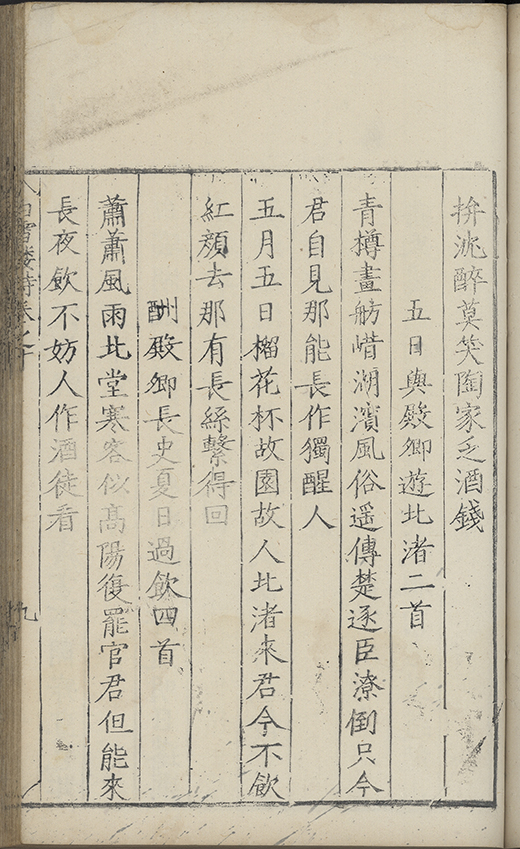 拚沈醉莫笑陶家乏酒錢
五日與殿卿遊北渚二首
青樽畫舫㫺湖濱風俗遥傳楚逐臣潦倒只今
君自見那能長作獨醒人
五月五日榴花杯故園故人北渚來君今不飲
紅顔去那有長絲繫得回
酬殿卿長史夏日過飲四首
蕭蕭風雨北堂寒客似高陽復罷官君但能來
長夜飲不妨人作酒徒看
白雪樓詩卷之十
九